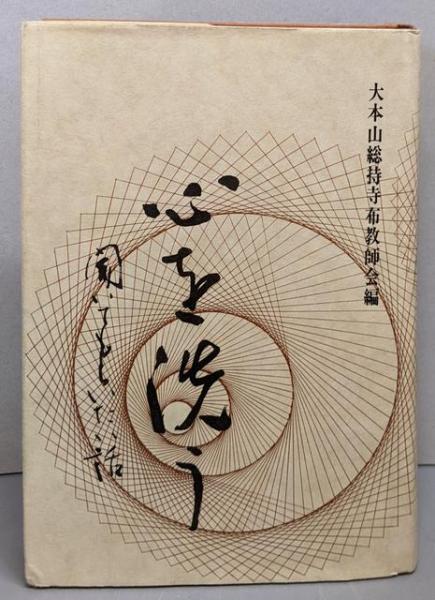 大本山総持寺布教師会編
心を洗う
聞いてもらいたい話